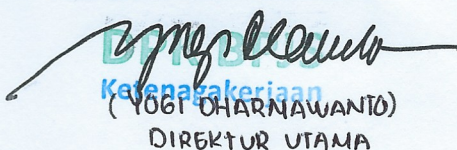 Ketenagakerjaan
(YOGI DHARMAWANTO)
DIREKTUR UTAMA